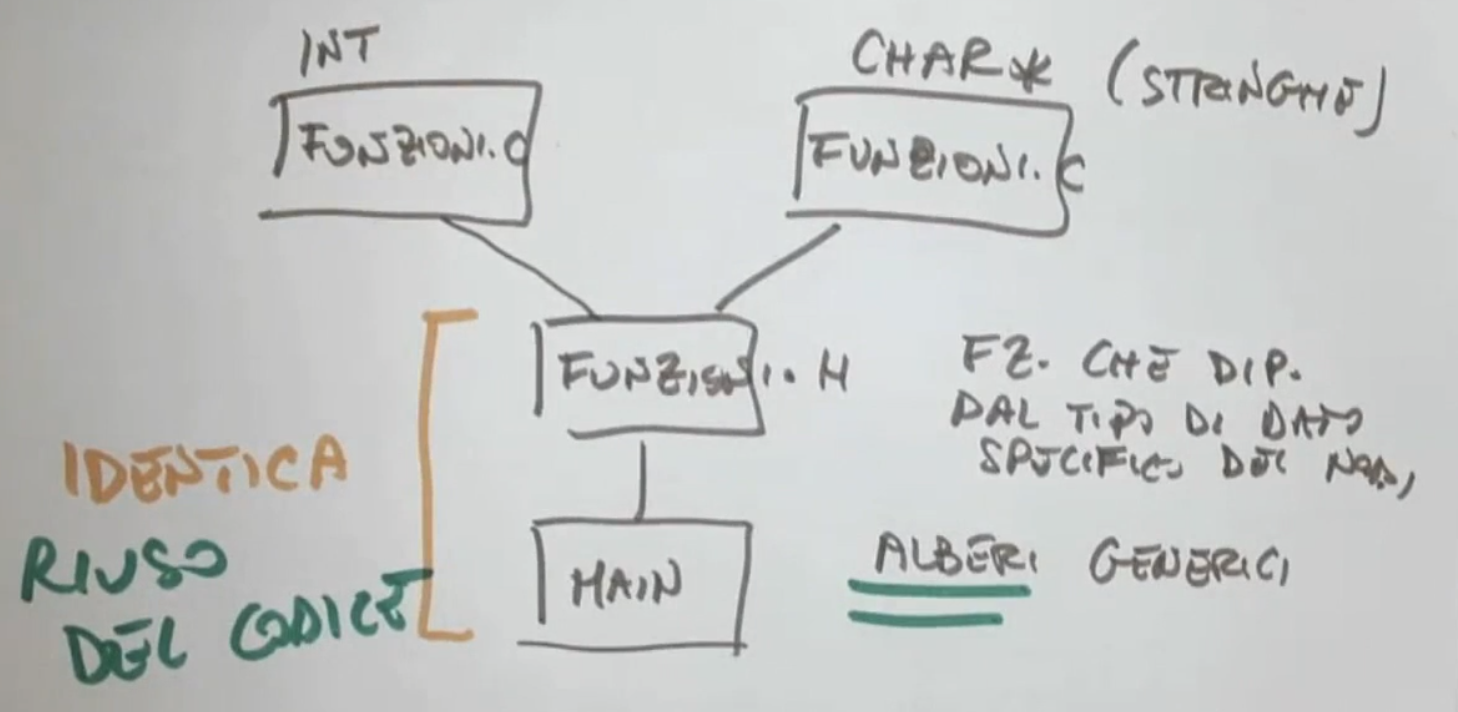 INT
CHAR* (STRINGHE)
FUNZIONI.C
FUNZIONI.C
FUNZIONI.H
FZ. CHE DIP.
DAL TIPO DI DATO
SPECIFICO DEL NODO
IDENTICA
RIUSO
DEL CODICE
MAIN
ALBERI GENERICI